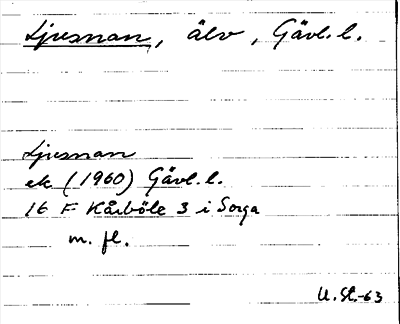 Ljusnan, älv, Gävl. l.
Ljusnan
ek (1960) Gävl. l.
16 F Kårböle 3 i Sorga
m. fl.
U. St.-63